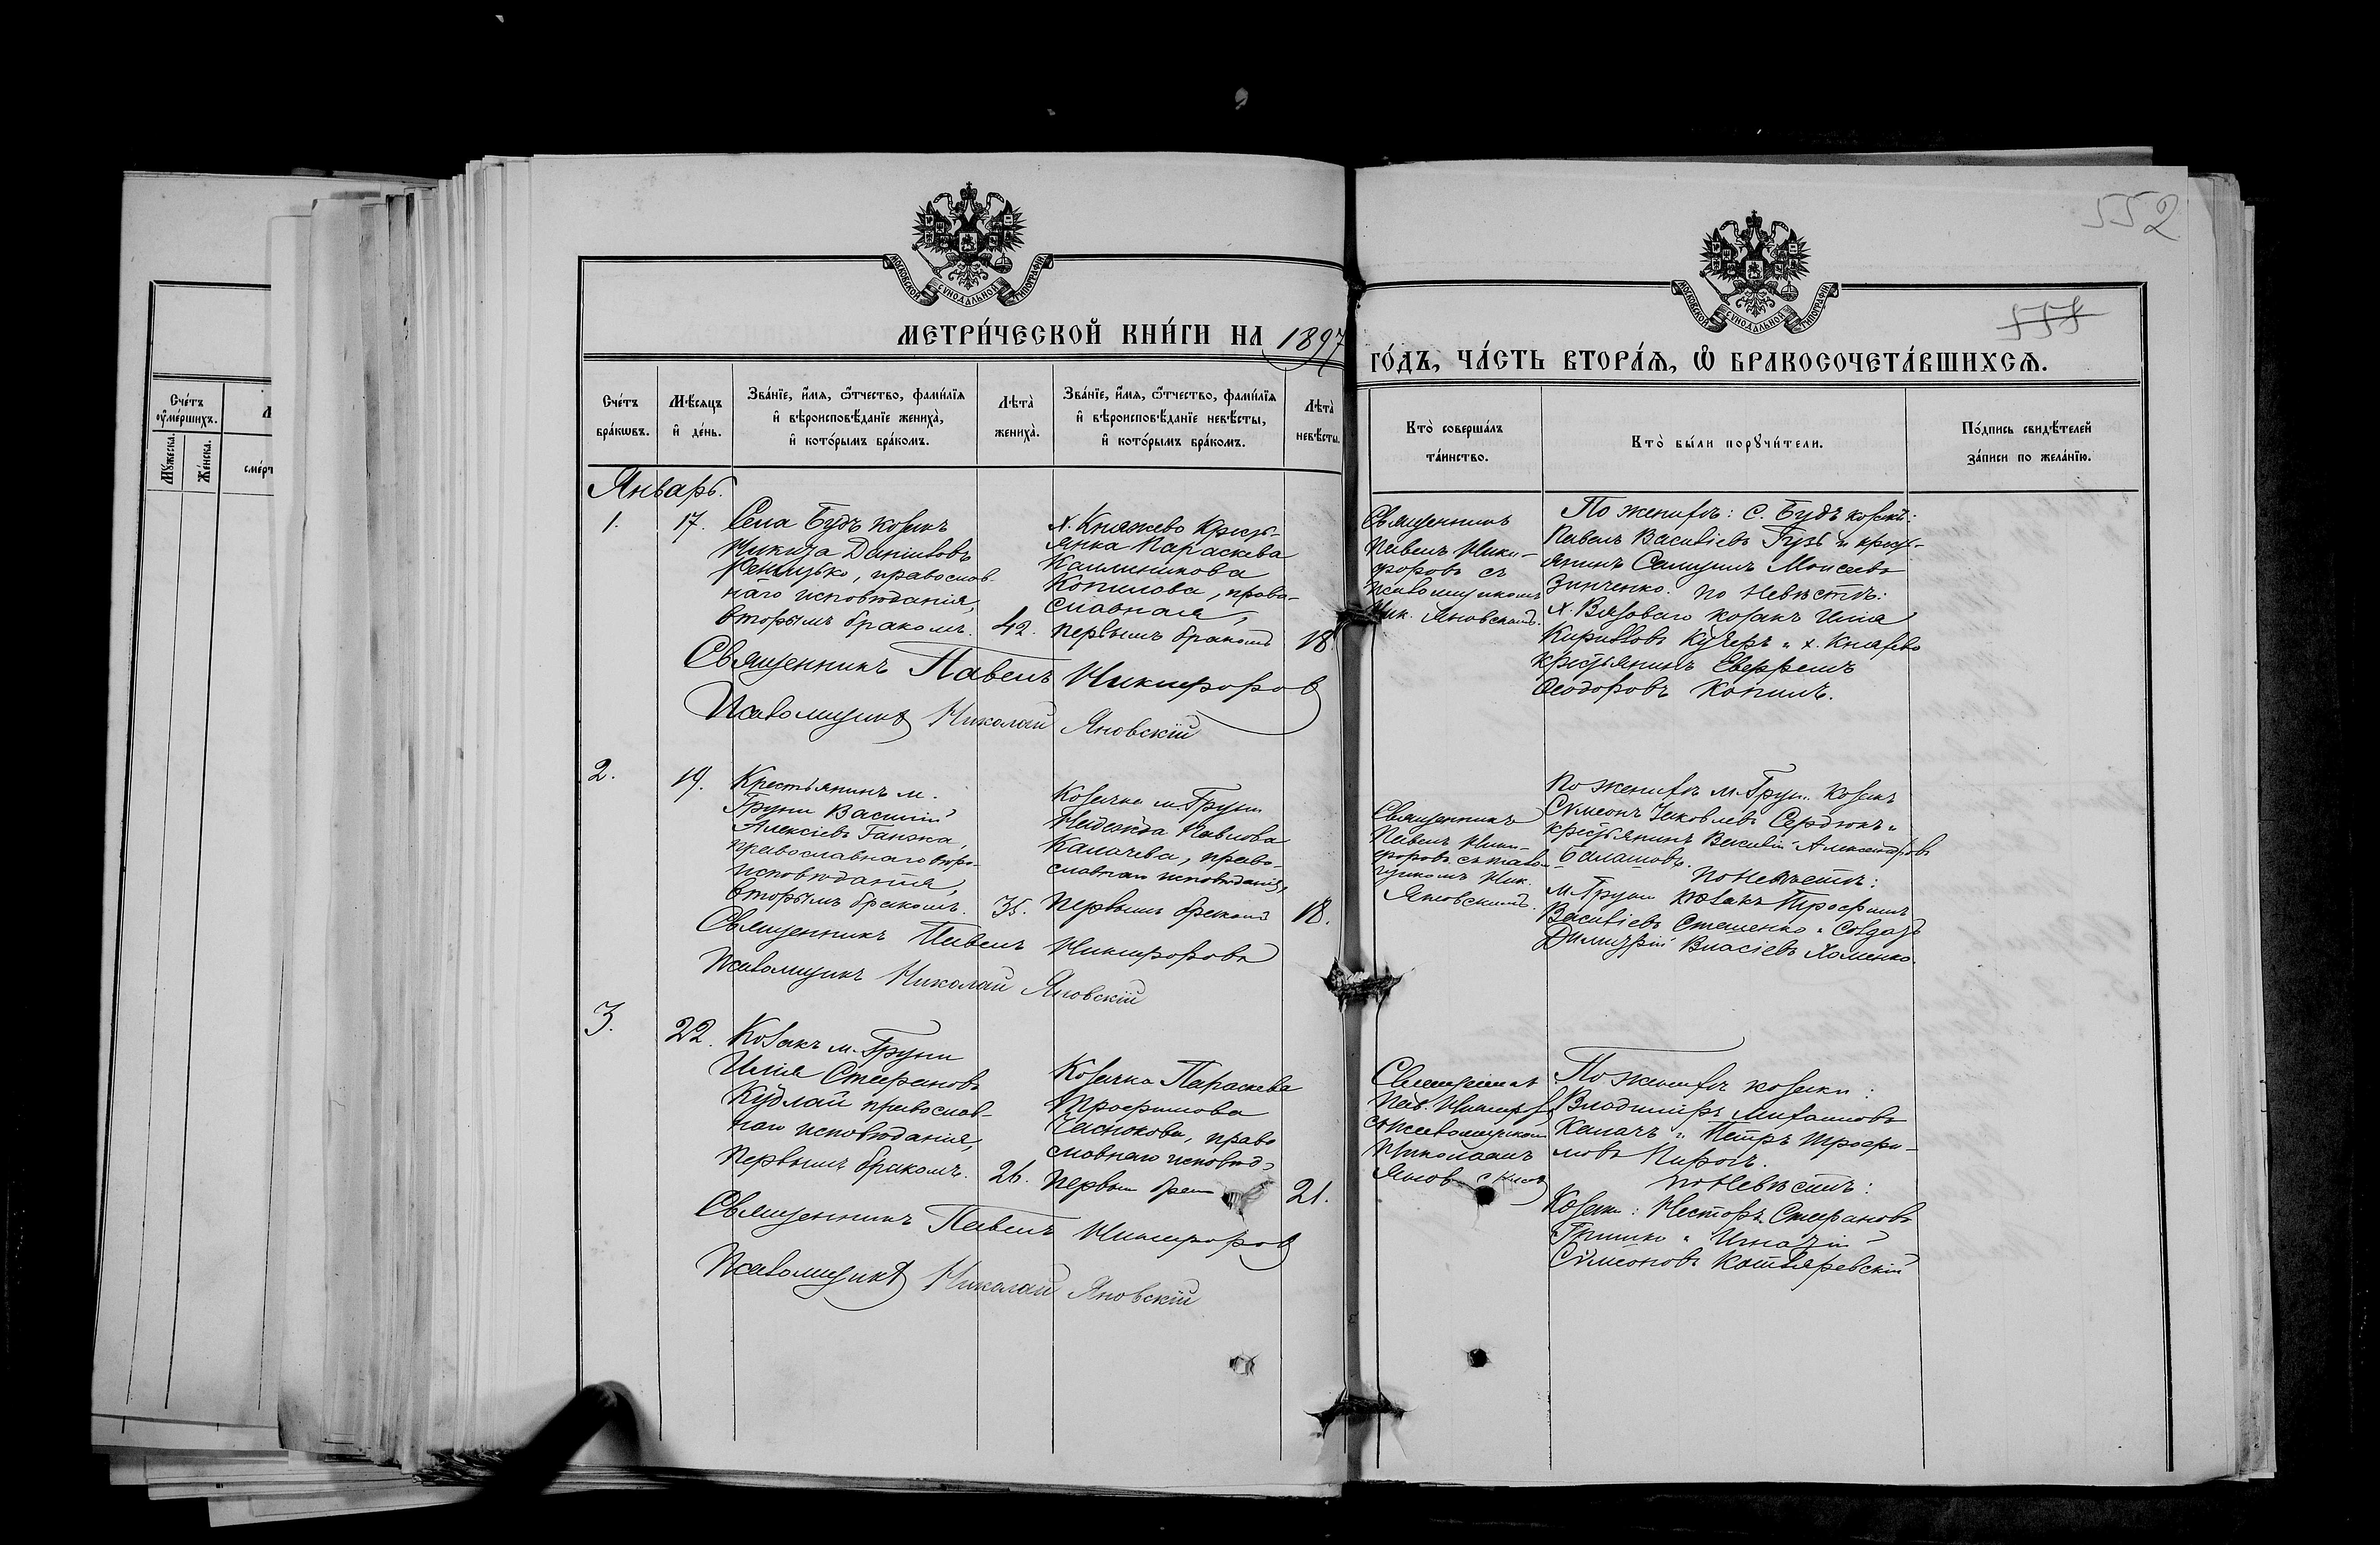 552
555
МОСКОВСКОЙ СѴНОДАЛЬНОЙ ТИПОГРАФІИ
МОСКОВСКОЙ СѴНОДАЛЬНОЙ ТИПОГРАФІИ
МЕТРИ́ЧЕСКОЙ КНИ́ГИ НА 1897
ГО́ДЪ, ЧА́СТЬ ВТОРА́Я, Ѡ БРАКОСОЧЕТА́ВШИХСЯ.
Сче́тъ
оу҆ме́ршихъ.
Мꙋ́жеска.
Же́нска.
сме́рт
Сче́тъ
бра́кѡвъ.
Мѣ́сяцъ
и҆ де́нь.
Зва́нїе, и҆́мя, ѻ҆́тчество, фами́лїя
и҆ вѣроисповѣ́данїе жениха̀,
и҆ кото́рымъ бра́комъ.
Лѣта̀
жениха̀.
Зва́нїе, и҆́мя, ѻ҆́тчество, фами́лїя
и҆ вѣроисповѣ́данїе невѣ́сты,
и҆ кото́рымъ бра́комъ.
Лѣта̀
невѣ́сты.
Кто̀ соверша́лъ
та́инство.
Кто̀ бы́ли порꙋчи́тели.
По́дпись свидѣ́телей
за́писи по жела́нїю.
Январь.
1.
17.
Села Будъ козакъ
Никита Даніиловъ
православ-
наго исповѣданія,
вторымъ бракомъ.
42.
х. Княжево кресть-
янка Параскева
Каллиникова
Копилова, право-
славная,
первымъ бракомъ
18.
Священникъ
Павелъ Ники-
форовъ съ
псаломщикомъ
Ник. Яновскимъ.
По женихѣ: с. Будъ козакъ:
Павелъ Василіевъ Гузь и кресть-
янинъ Моисеевъ
Зинченко. По невѣстѣ:
х. Вязоваго козакъ Илія
Кирилловъ Кучеръ и х. Княжево
крестьянинъ Евфремъ
Ѳеодоровъ Копилъ.
Священникъ Павелъ Никифоровъ
Псаломщикъ Николай Яновскій
2.
19.
Крестьянинъ м.
Груни Василій
Алексіевъ Ганжа,
православнаго вѣро-
исповѣданія,
вторымъ бракомъ.
35.
Козачка м. Груни
Надежда Павлова
Калачева, право-
славнаго исповѣданія,
первымъ бракомъ
18.
Священникъ
Павелъ Ники-
форовъ съ псалом-
щикомъ Ник.
Яновскимъ.
По женихѣ м. Груни козакъ
Сѵмеонъ Іаковлевъ Сердюкъ и
крестьянинъ Василій Александровъ
Балашовъ. По невѣстѣ:
м. Груни козакъ Трофимъ
Василіевъ Стеценко и солдатъ
Димитрій Власіевъ Хоменко.
Священникъ Павелъ Никифоровъ
Псаломщикъ Николай Яновскій
3.
22.
Козакъ м. Груни
Илія Стефановъ
Кудлай православ-
наго исповѣданія,
первымъ бракомъ.
26.
Козачка Параскева
Трофимова
Часнокова, право
славнаго исповѣд.
первым брак
21.
Священникъ
Пав. Никифоровъ
съ псаломщикомъ
Николаемъ
Яновскимъ
По женихѣ козаки:
Владиміръ Михаиловъ
Калачъ и Петръ Трофи-
мовъ Пирогъ.
По невѣстѣ:
Козаки: Несторъ Стефановъ
Гришко и Игнатій
Сѵмеоновъ Котляревскій
Священникъ Павелъ Никифоровъ
Псаломщикъ Николай Яновскій